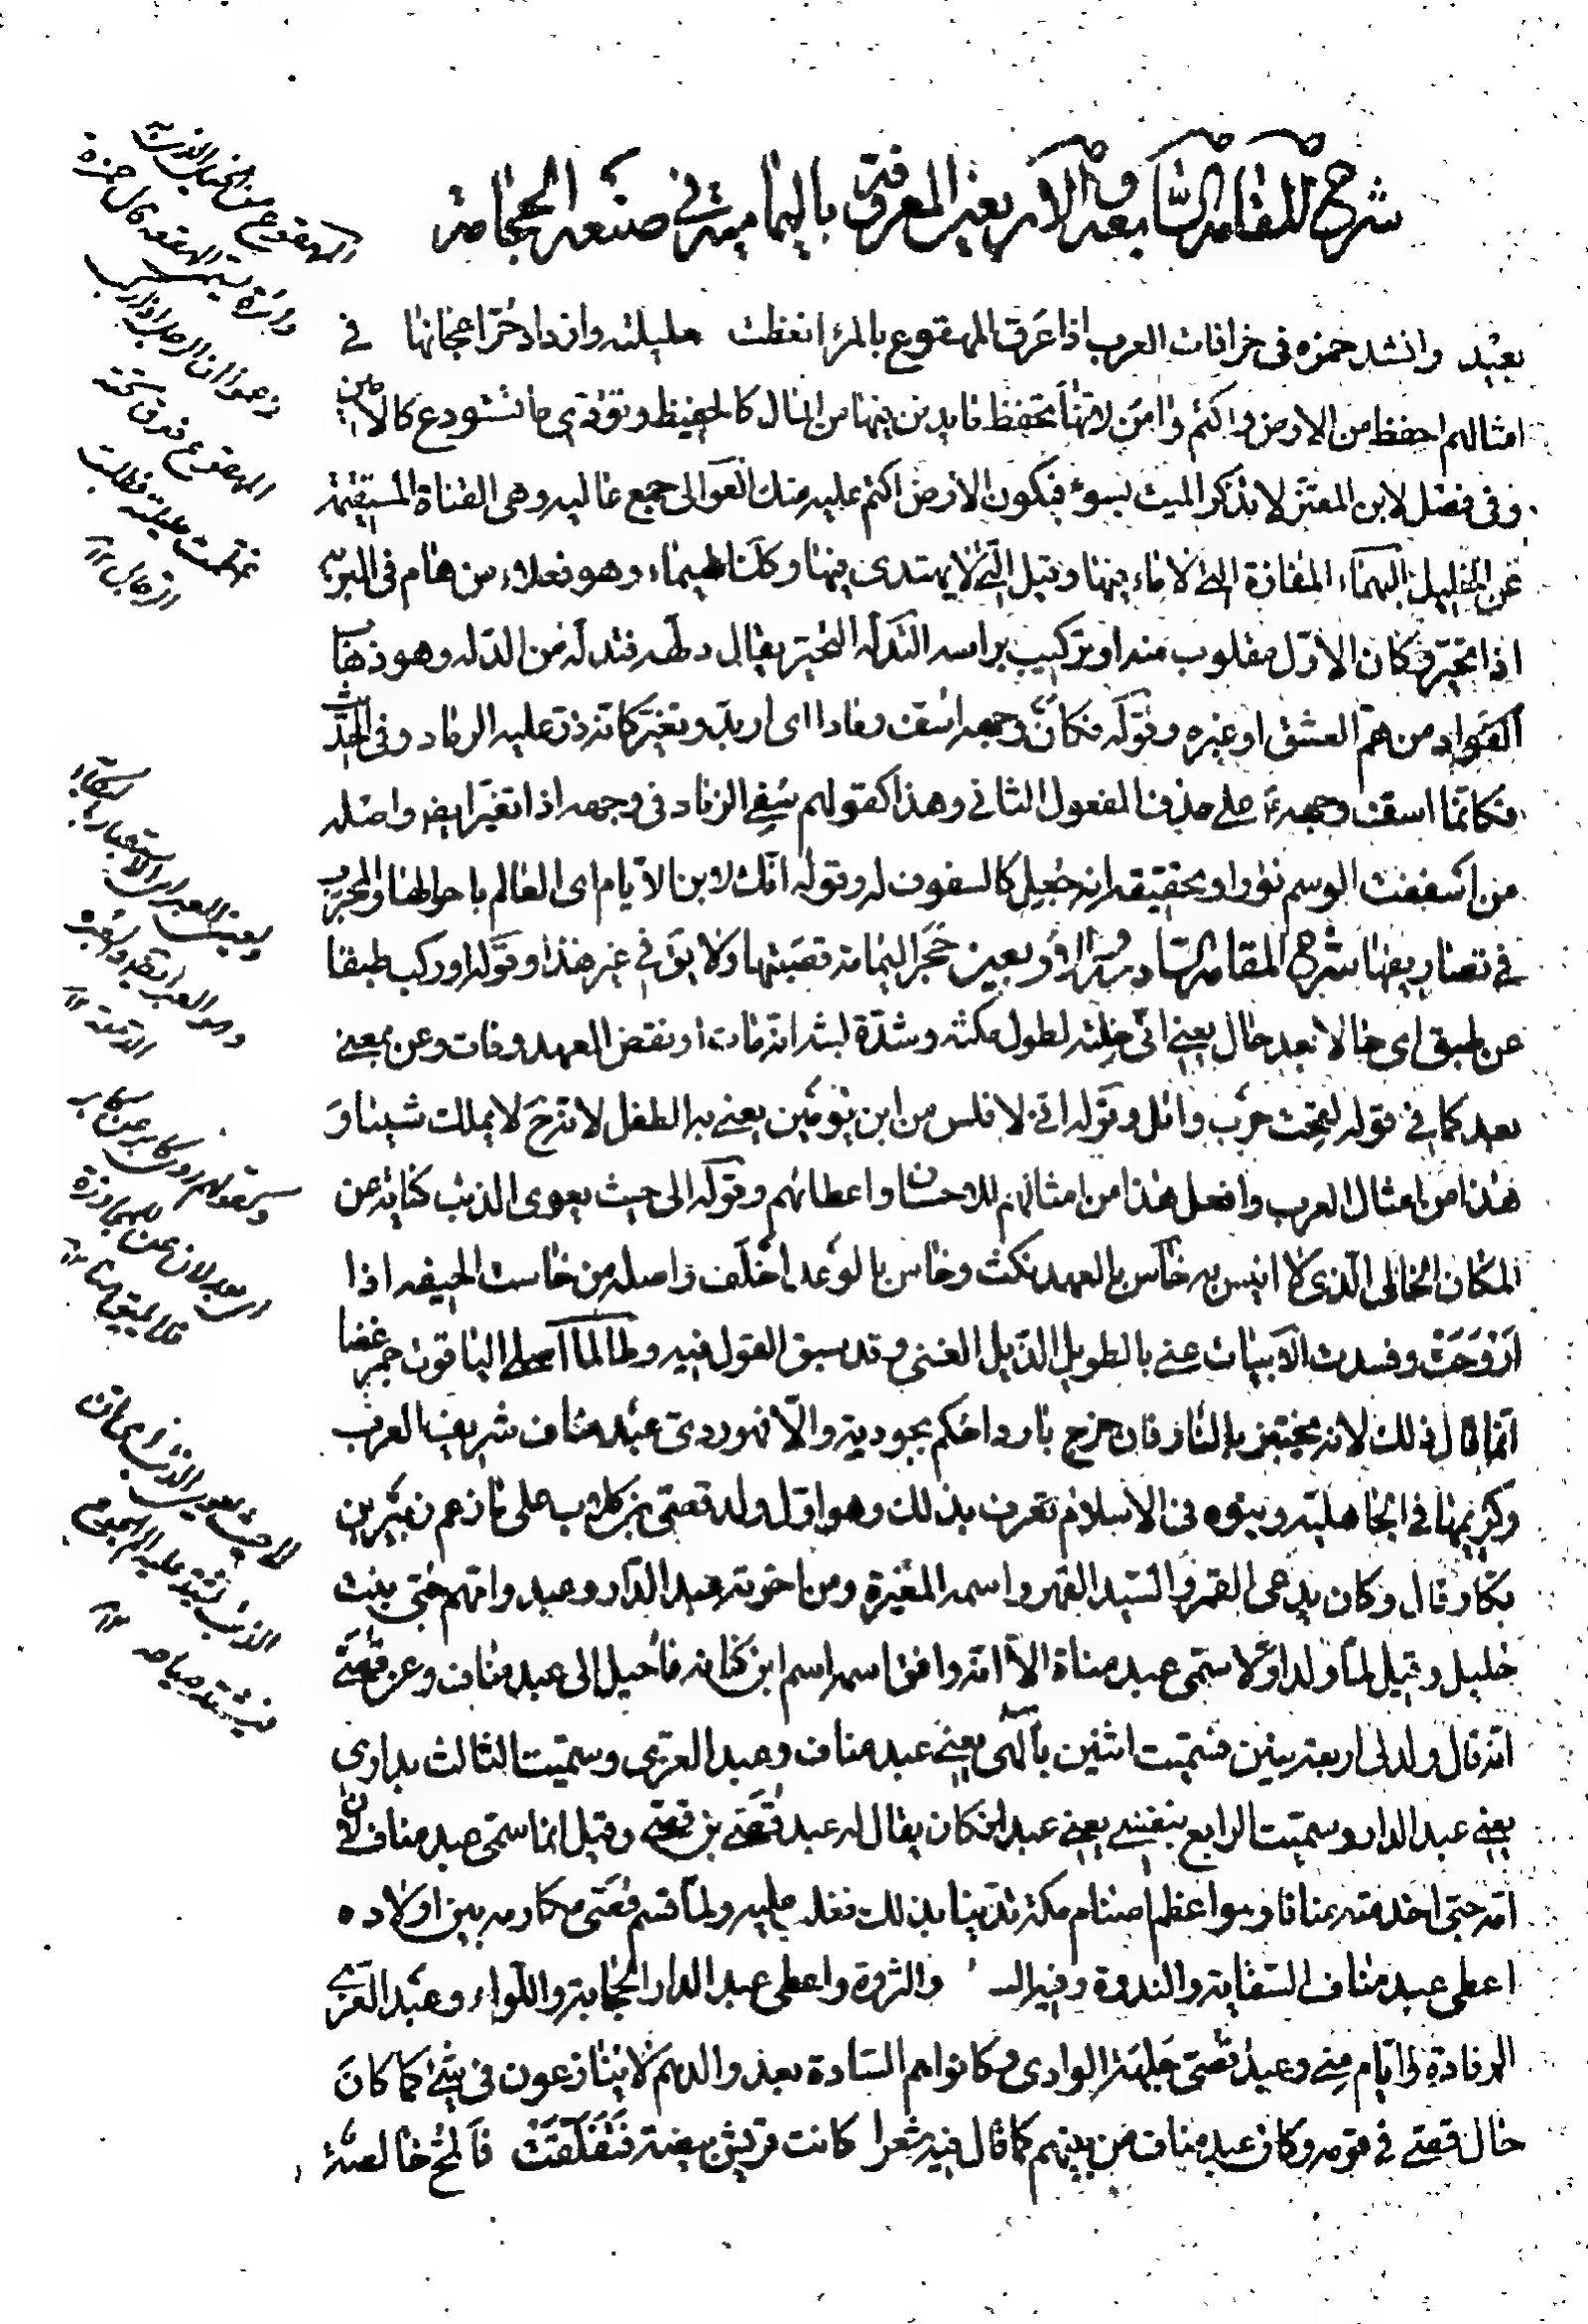 شرح المقامة السابعة والاربعين المعروفة باليمامية في صنعة الحجامة
بعيد وانشد حمزه فى خرافات العرب اذا عرق المهقوع بالمرء انغظت حليلته وازداد حرا عجانها في
امثالهم احفظ من الارض واكتم وامن لانها تحفظ ما يدفن فيها من المال كالحفيظ وتؤدى ما تستودع كالامين
وفى فصل لابن المعتز لا تذكر الميت بسوء فيكون الارض اكتم عليه منك العوالى جمع عاليه وهى القناة المستقيمة
عن الخليل اليهماء المفازة التى لا ماء فيها وقيل التى لا يهتدى فيها وكذا الهيماء وهو فعلاء من هام فى البرية
اذا تحير وكان الاول مقلوب منه او تركيب براسه التدله التحير يقال دلهه فتدله من الدله وهو ذهاب
الفواد من هم العشق او غيره وقوله فكان وجهه اسف رمادا اى اربد وتغير كانه ذر عليه الرماد وفى الحديث
فكانما اسف وجهه على حذف المفعول الثانى وهذا كقولهم سفى الرماد فى وجهه اذا تغير ايضا واصله
من اسففت الوسم نؤرا وتحقيقه انه جعل كالسفوف له وقوله انك لابن الايام اى العالم باحوالها والمجرب
في تصاريفها شرح المقامة السادسة والاربعين حجر اليمامة قصبتها ولا يؤ في غير هذا وقوله او ركب طبقا
عن طبق اى حالا بعد حال يعنى انى خلته لطول مكثه وشدة لبثه انه مات او نقض العهد وفات وعن بمعنى
بعد كما في قوله لقحت حرب وائل وقوله انى لافلس من ابن يومين يعنى به الطفل لانه لا يملك شيئا و
هذا من امثال العرب وافعل هذا من امثالهم للاحسان واعطائهم وقوله الى حيث يعوى الذئب كناية عن
المكان الخالى الذى لا انيس به خاس بالعهد نكث وخاس بالوعد اخلف واصله من خاست الجيفه اذا
اروحت وفسدت الابيات عنى بالطويل الذيل الغنى وقد سبق القول فيه وطالما اصلى الياقوت جمر غضا
انما قال ذلك لانه يختبر بالنار فان خرج باردا حكم بجودته والا فهو ردى عبد مناف شريف العرب
وكريمها في الجاهلية وبنوه فى الاسلام تعرف بذلك وهو اول ولد قصى بن كلاب على ما زعم زبير بن
بكار قال وكان يدعى القمر والسيد الفهر واسمه المغيرة ومن اخوته عبد الدار وعبد وامهم حبى بنت
خليل وقيل لما ولد اولا سمى عبد مناة الا انه وافق اسمه اسم ابن كنانه فاحيل الى عبد مناف وعن قصى
انه قال ولد لى اربعة بنين فسميت اثنين بالهى يعنى عبد مناف وعبد العزى وسميت الثالث بدارى
يعنى عبد الدار وسميت الرابع بنفسى يعنى عبدا فكان يقال له عبد قصى بن قصى وقيل انما سمى عبد مناف لان
امه حبى اخدمته منافا وهو اعظم اصنام مكة تدينا بذلك فغلب عليه ولما قسم قصى مكارمه بين اولاده
اعطى عبد مناف السقاية والندوة وفيه والثروة واعطى عبد الدار الحجابة واللواء وعبد العزى
الرفادة وايام منى وعبد قصى جلهة الوادى وكانوا هم السادة بعد والدهم لا يتنازعون فى شئ كما كان
حال قصى في قومه وكان عبد مناف من بينهم كما قال فيه شعرا كانت قريش بيضة فتفلقت فالمح خالصة
المهقوع من الخيل الذى به
دائرة يسمى الهقعه قال حمزة
زعموا ان الرجل اذا ركب
المهقوع فعرق تحته
اغتلمت حليلته فطالبت